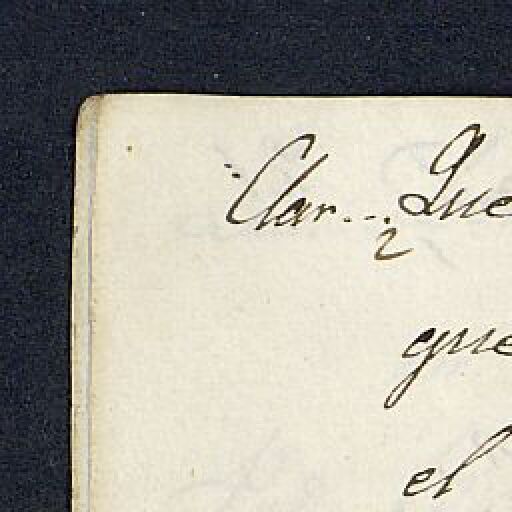 Clar... Que
2
que
el